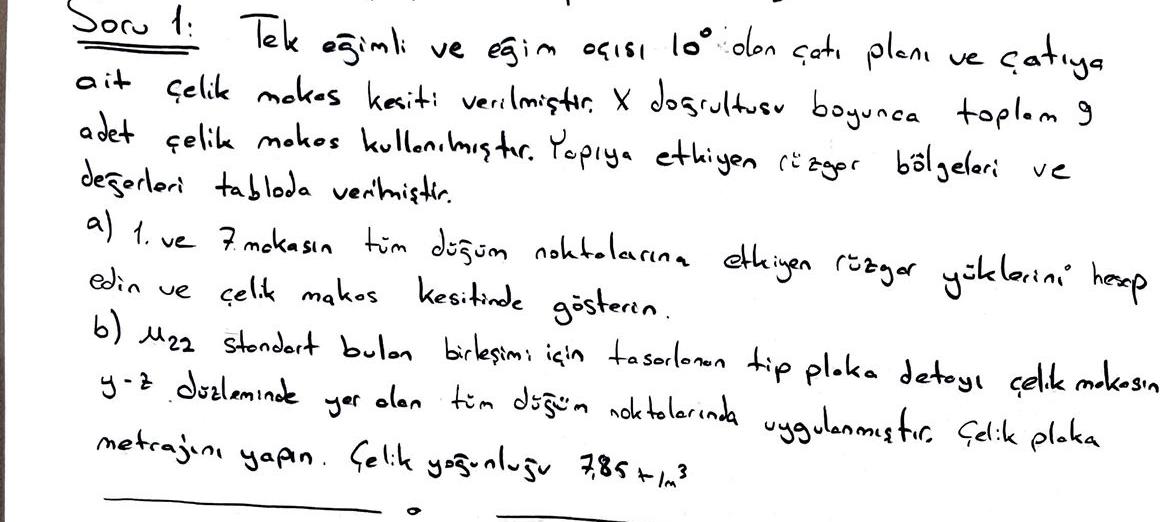 Soru 1: Tek eğimli ve eğim açısı 10° olan çatı planı ve çatıya
ait çelik makas kesiti verilmiştir. X doğrultusu boyunca toplam 9
adet çelik makas kullanılmıştır. Yapıya etkiyen rüzgar bölgeleri ve
değerleri tabloda verilmiştir.
a) 1. ve 7. makasın tüm düğüm noktalarına etkiyen rüzgar yüklerini hesap
edin ve çelik makas kesitinde gösterin.
b) M22 standart bulon birleşimi için tasarlanan tip plaka detayı çelik makasın
y-z düzleminde yer alan tüm düğüm noktalarında uygulanmıştır. Çelik plaka
metrajını yapın. Çelik yoğunluğu 7,85 t/m³